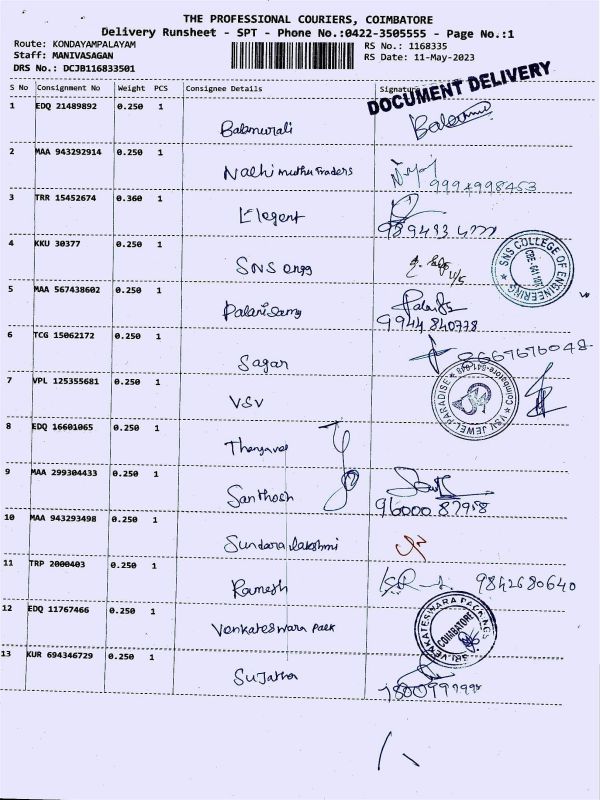 THE PROFESSIONAL COURIERS, COIMBATORE
Delivery Runsheet - SPT - Phone No.:0422-3505555 - Page No.:1
Route: KONDAYAMPALAYAM RS No.: 1168335
Staff: MANIVASAGAN RS Date: 11-May-2023
DRS No.: DCJB116833501
DOCUMENT DELIVERY
S No Consignment No Weight PCS Consignee Details Signature
1 EDQ 21489892 0.250 1
Balamurali
2 MAA 943292914 0.250 1
Nalhi muthu Traders
3 TRR 15452674 0.360 1
Elegent
4 KKU 30377 0.250 1
SNS engg
SNS COLLEGE OF ENGINEERING
5 MAA 567438602 0.250 1
Palanisamy
9944840778
6 TCG 15062172 0.250 1
Sagar 8667676048
7 VPL 125355681 0.250 1
VSV
V&N JEWEL-PARADISE Coimbatore-641 048
8 EDQ 16601065 0.250 1
Thangavel
9 MAA 299304433 0.250 1
Santhosh
10 MAA 943293498 0.250 1
Sundaralakshmi
11 TRP 2000403 0.250 1
Ramesh 9842680640
12 EDQ 11767466 0.250 1
Venkateswara pack
SRI VENKATESWARA PACKINGS COIMBATORE
13 KUR 694346729 0.250 1
Sujatha